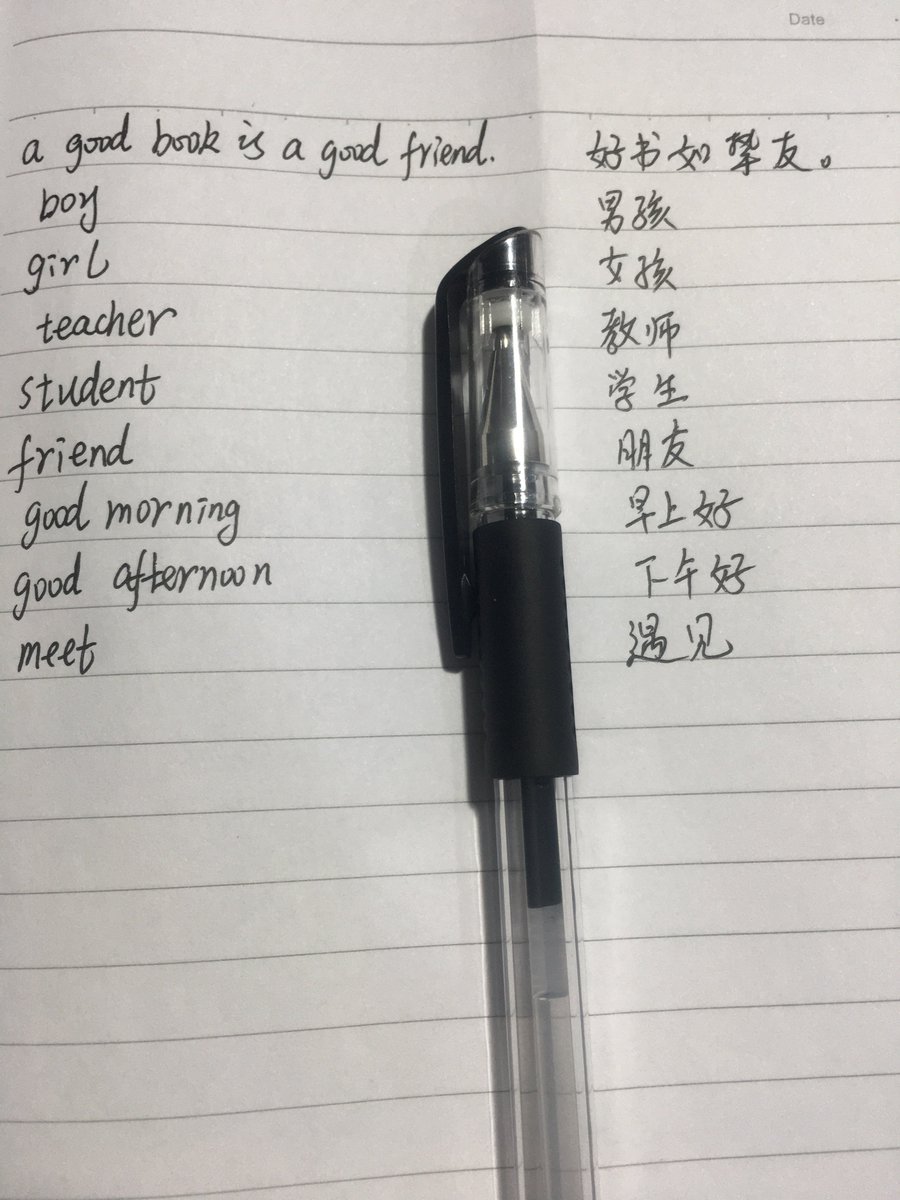 Date
a good book is a good friend. 好书如挚友。
boy 男孩
girl 女孩
teacher 教师
student 学生
friend 朋友
good morning 早上好
good afternoon 下午好
meet 遇见